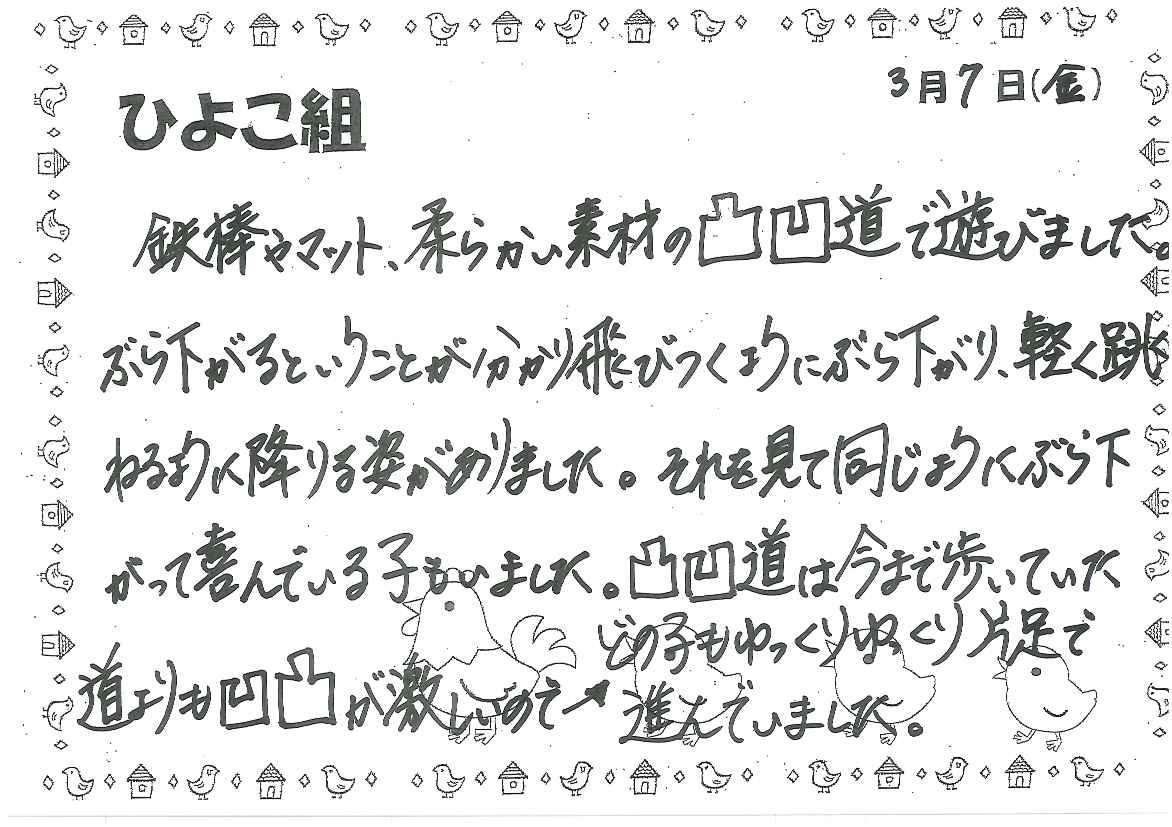 3月7日(金)
ひよこ組
鉄棒やマット、柔らかい素材の凸凹道で遊びました。
ぶら下がるということが分かり飛びつくようにぶら下がり、軽く跳
ねるように降りる姿がありました。それを見て同じようにぶら下
がって喜んでいる子もいました。凸凹道は今まで歩いていた
道よりも凹凸が激しいので→
どの子もゆっくりゆっくり片足で
進んでいました。